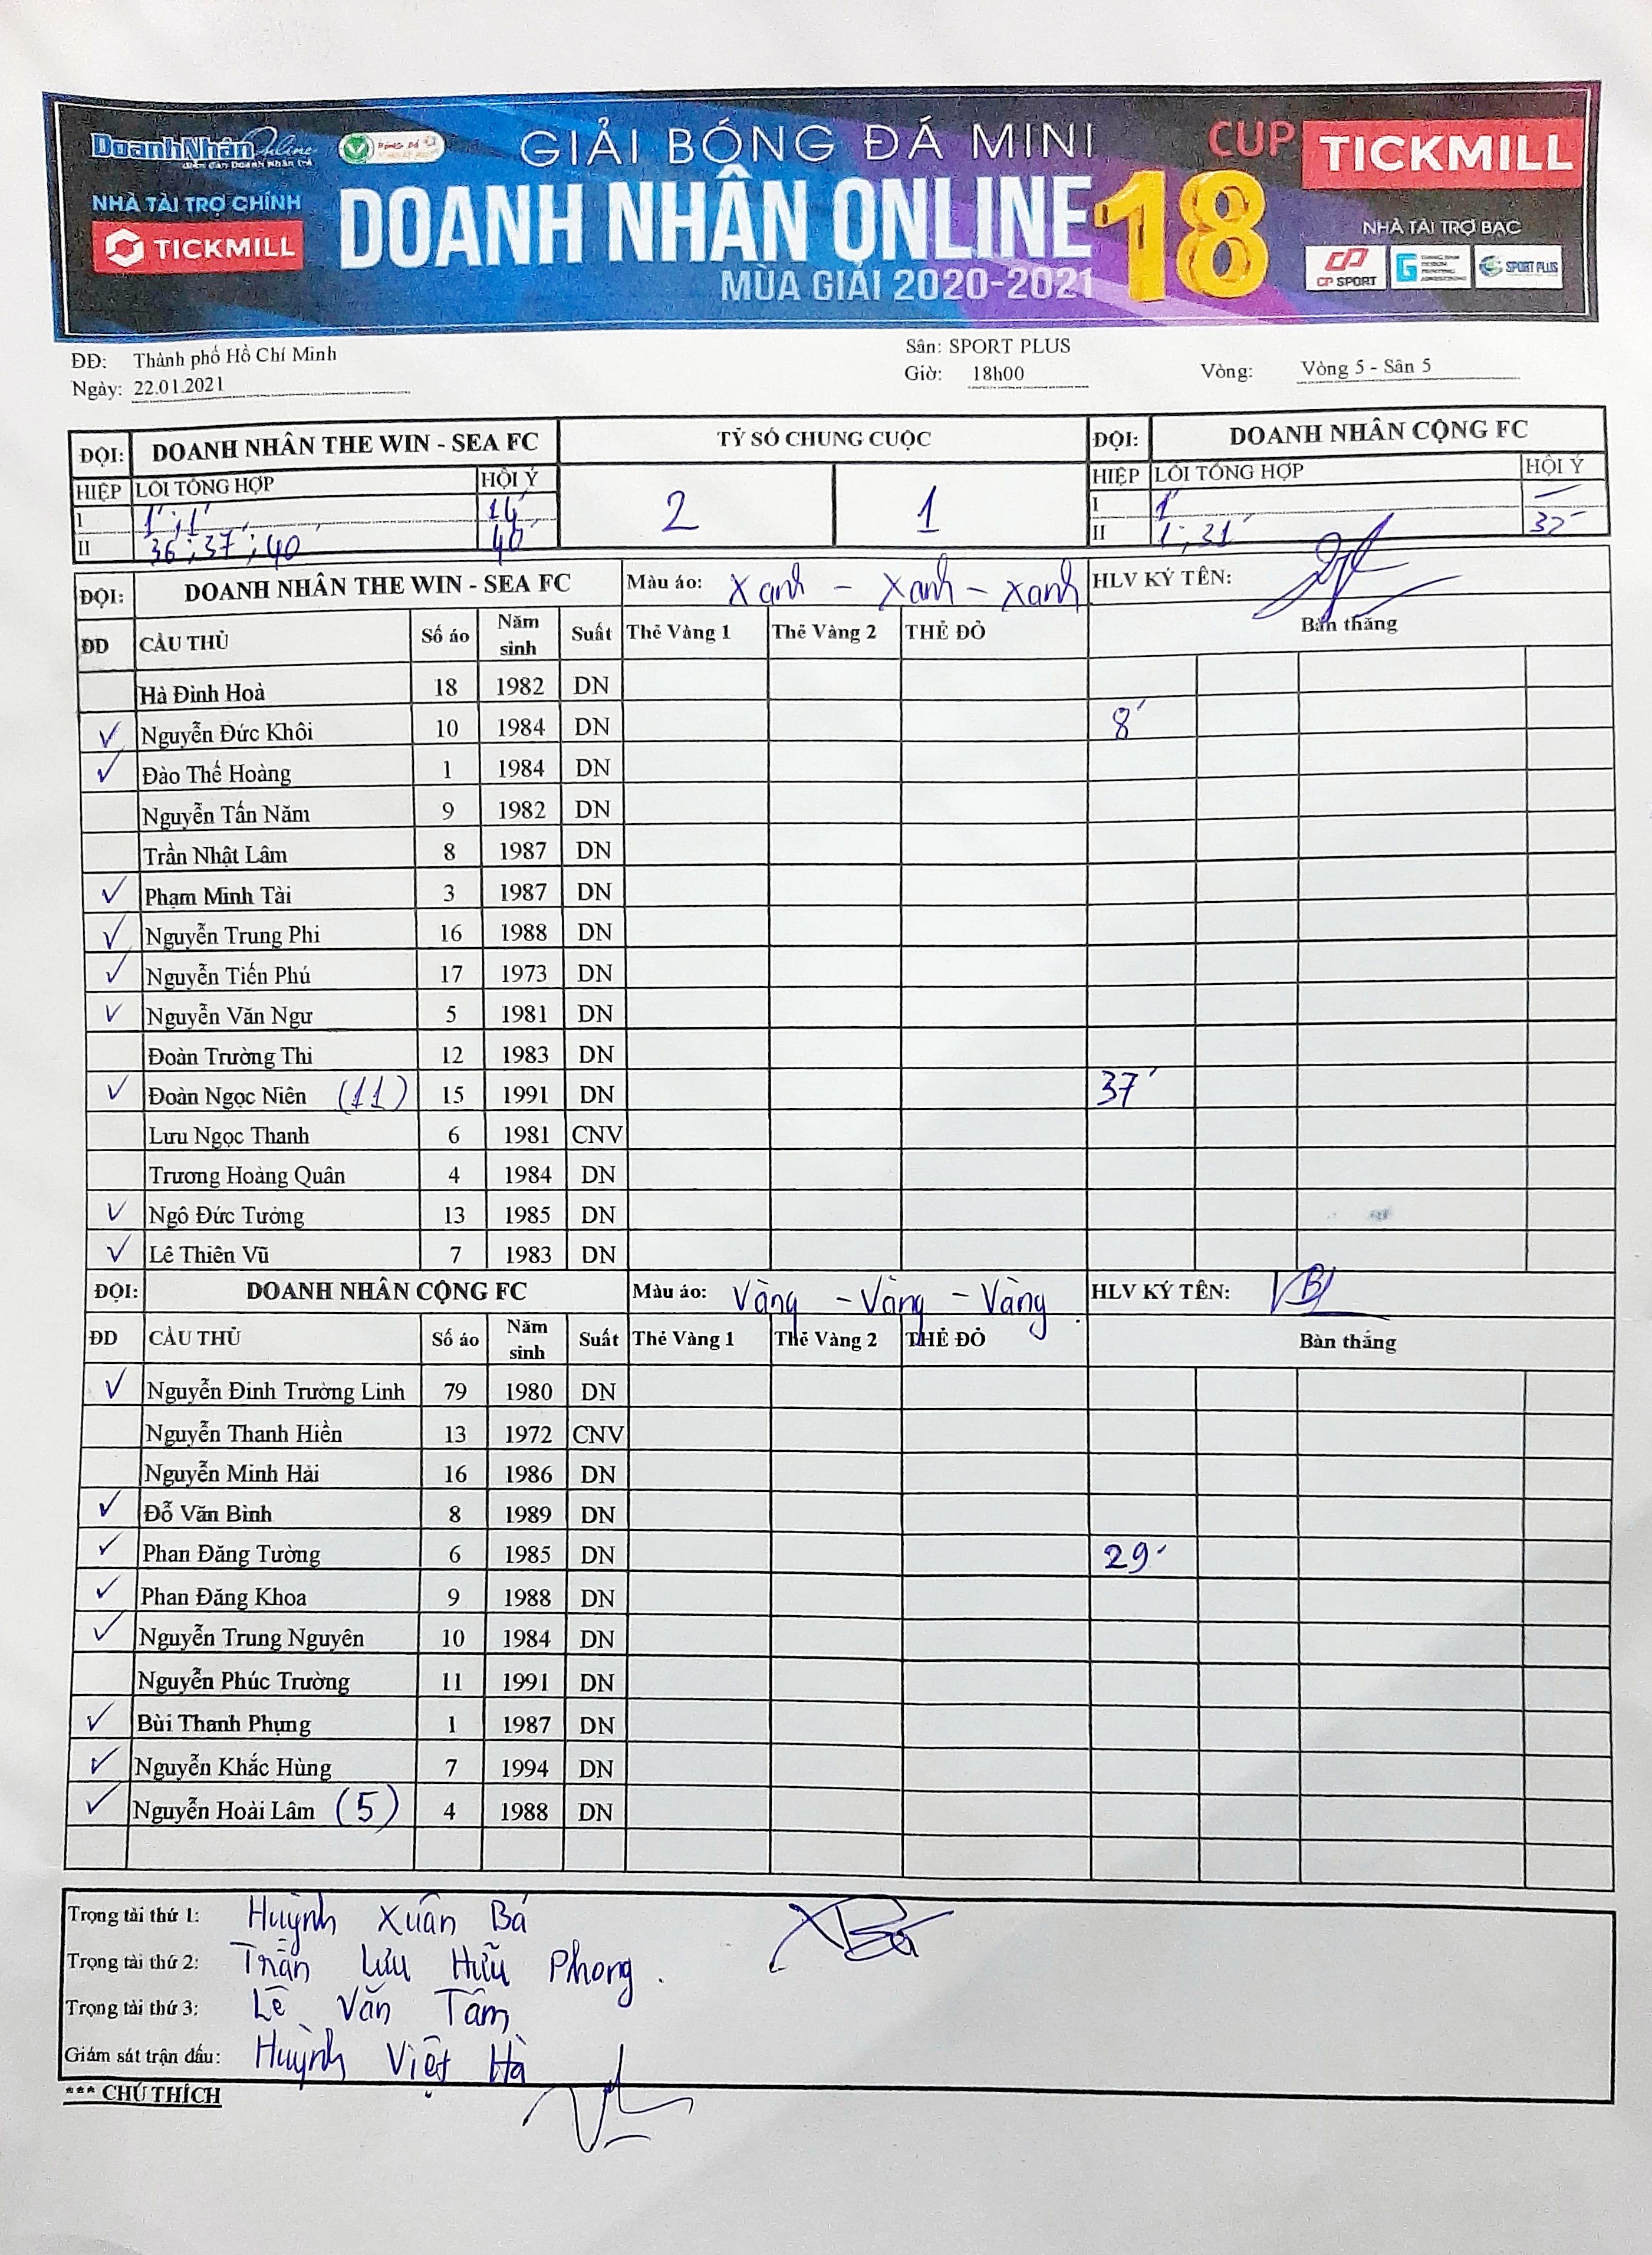 DoanhNhânOnline GIẢI BÓNG ĐÁ MINI CUP TICKMILL
diễn đàn Doanh Nhân trẻ
NHÀ TÀI TRỢ CHÍNH DOANH NHÂN ONLINE 18 NHÀ TÀI TRỢ BẠC
TICKMILL CP SPORT SPORT PLUS
MÙA GIẢI 2020-2021
ĐĐ: Thành phố Hồ Chí Minh Sân: SPORT PLUS
Ngày: 22.01.2021 Giờ: 18h00 Vòng: Vòng 5 - Sân 5
ĐỘI: DOANH NHÂN THE WIN - SEA FC TỶ SỐ CHUNG CUỘC ĐỘI: DOANH NHÂN CỘNG FC
HIỆP LỖI TỔNG HỢP HỘI Ý 2 1 HIỆP LỖI TỔNG HỢP HỘI Ý
I 1' ; 1' 14' I 1' –
II 36' ; 37' ; 40' 40' II 1' ; 31'
ĐỘI: DOANH NHÂN THE WIN - SEA FC Màu áo: Xanh - Xanh - Xanh HLV KÝ TÊN:
ĐD CẦU THỦ Số áo Năm sinh Suất Thẻ Vàng 1 Thẻ Vàng 2 THẺ ĐỎ Bàn thắng
Hà Đình Hoà 18 1982 DN
✓ Nguyễn Đức Khôi 10 1984 DN 8'
✓ Đào Thế Hoàng 1 1984 DN
Nguyễn Tấn Năm 9 1982 DN
Trần Nhật Lâm 8 1987 DN
✓ Phạm Minh Tài 3 1987 DN
✓ Nguyễn Trung Phi 16 1988 DN
✓ Nguyễn Tiến Phú 17 1973 DN
✓ Nguyễn Văn Ngư 5 1981 DN
Đoàn Trường Thi 12 1983 DN
✓ Đoàn Ngọc Niên (11) 15 1991 DN 37'
Lưu Ngọc Thanh 6 1981 CNV
Trương Hoàng Quân 4 1984 DN
✓ Ngô Đức Tưởng 13 1985 DN
✓ Lê Thiên Vũ 7 1983 DN
ĐỘI: DOANH NHÂN CỘNG FC Màu áo: Vàng - Vàng - Vàng HLV KÝ TÊN:
ĐD CẦU THỦ Số áo Năm sinh Suất Thẻ Vàng 1 Thẻ Vàng 2 THẺ ĐỎ Bàn thắng
✓ Nguyễn Đình Trường Linh 79 1980 DN
Nguyễn Thanh Hiền 13 1972 CNV
Nguyễn Minh Hải 16 1986 DN
✓ Đỗ Văn Bình 8 1989 DN
✓ Phan Đăng Tường 6 1985 DN 29'
✓ Phan Đăng Khoa 9 1988 DN
✓ Nguyễn Trung Nguyên 10 1984 DN
Nguyễn Phúc Trường 11 1991 DN
✓ Bùi Thanh Phụng 1 1987 DN
✓ Nguyễn Khắc Hùng 7 1994 DN
✓ Nguyễn Hoài Lâm (5) 4 1988 DN
Trọng tài thứ 1: Huỳnh Xuân Bá
Trọng tài thứ 2: Trần Lưu Hữu Phong.
Trọng tài thứ 3: Lê Văn Tâm
Giám sát trận đấu: Huỳnh Việt Hà
*** CHÚ THÍCH